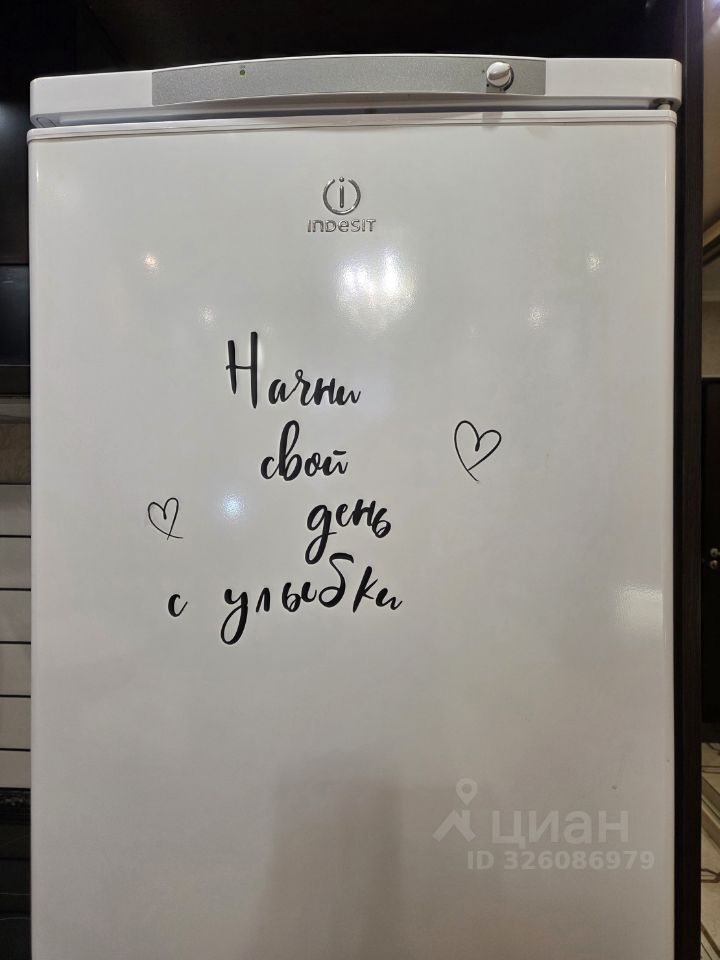 INDESIT
Начни
свой
день
с улыбки
циан
ID 326086979